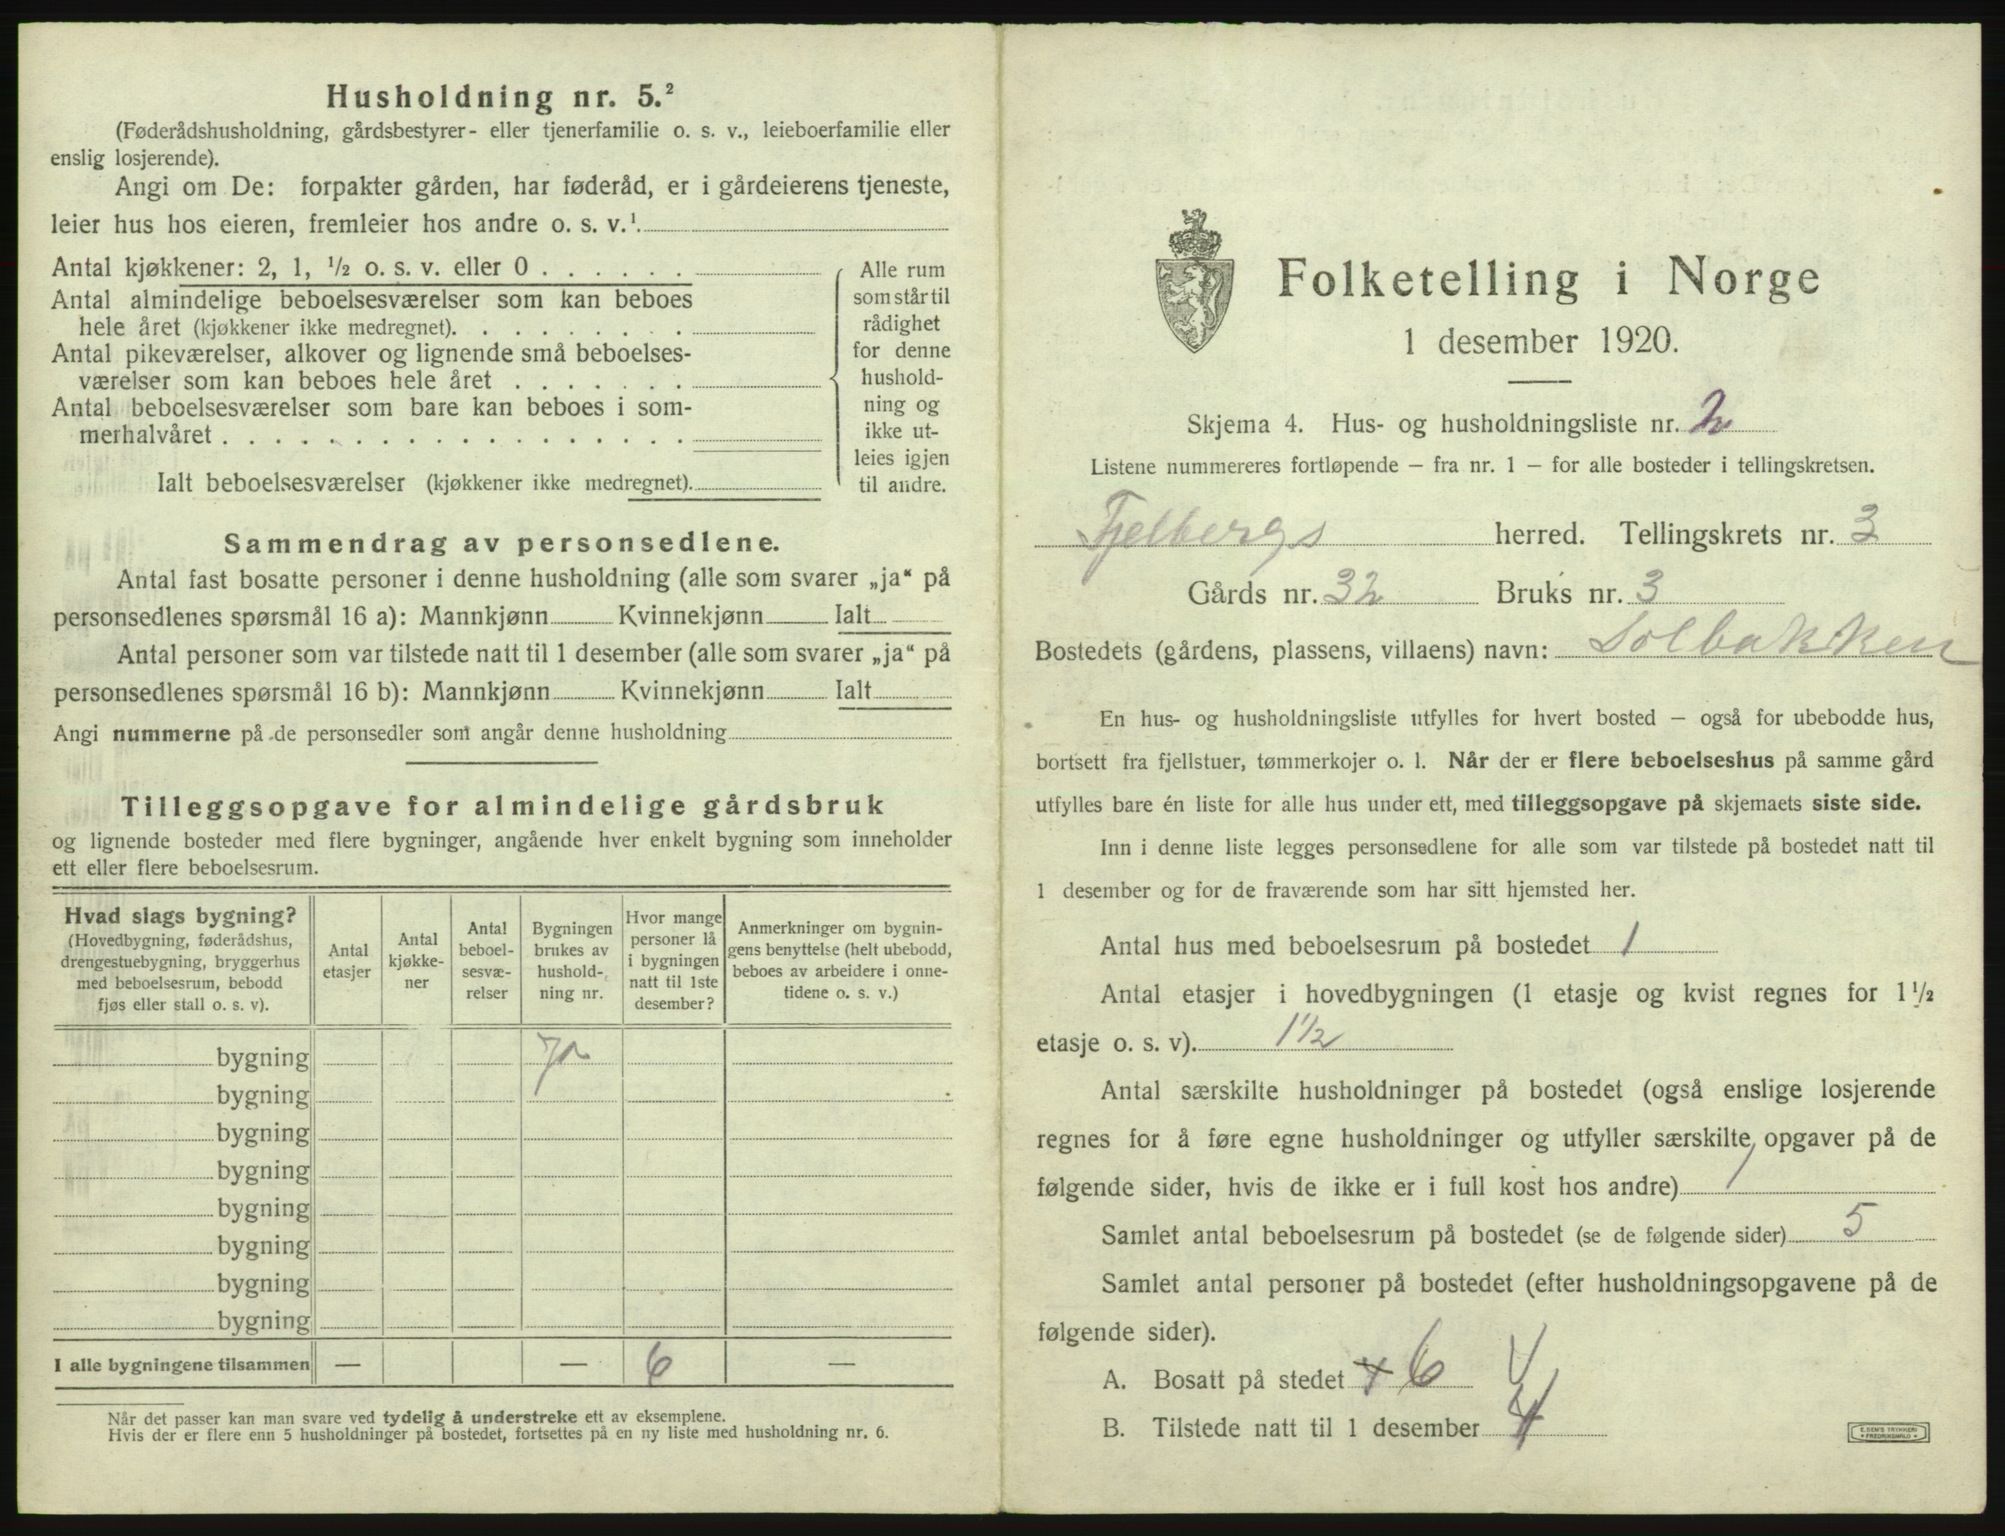 Husholdning nr. 5.²
(Føderådshusholdning, gårdsbestyrer- eller tjenerfamilie o. s. v., leieboerfamilie eller
enslig losjerende).
Angi om De: forpakter gården, har føderåd, er i gårdeierens tjeneste,
leier hus hos eieren, fremleier hos andre o. s. v.¹
Antal kjøkkener: 2, 1, ½ o. s. v. eller 0
Antal almindelige beboelsesværelser som kan beboes
hele året (kjøkkener ikke medregnet).
Antal pikeværelser, alkover og lignende små beboelses-
værelser som kan beboes hele året
Antal beboelsesværelser som bare kan beboes i som-
merhalvåret
Ialt beboelsesværelser (kjøkkener ikke medregnet).
Alle rum
som står til
rådighet
for denne
hushold-
ning og
ikke ut-
leies igjen
til andre.
Sammendrag av personsedlene.
Antal fast bosatte personer i denne husholdning (alle som svarer „ja“ på
personsedlenes spørsmål 16 a): Mannkjønn Kvinnekjønn Ialt
Antal personer som var tilstede natt til 1 desember (alle som svarer „ja“ på
personsedlenes spørsmål 16 b): Mannkjønn Kvinnekjønn Ialt
Angi nummerne på de personsedler som angår denne husholdning
Tilleggsopgave for almindelige gårdsbruk
og lignende bosteder med flere bygninger, angående hver enkelt bygning som inneholder
ett eller flere beboelsesrum.
Hvad slags bygning?
(Hovedbygning, føderådshus,
drengestuebygning, bryggerhus
med beboelsesrum, bebodd
fjøs eller stall o. s. v).
Antal
etasjer
Antal
kjøkke-
ner
Antal
beboel-
sesvæ-
relser
Bygningen
brukes av
hushold-
ning nr.
Hvor mange
personer lå
i bygningen
natt til 1ste
desember?
Anmerkninger om bygnin-
gens benyttelse (helt ubebodd,
beboes av arbeidere i onne-
tidene o. s. v.)
bygning
bygning
bygning
bygning
bygning
bygning
bygning
bygning
I alle bygningene tilsammen — — 6 —
Når det passer kan man svare ved tydelig å understreke ett av eksemplene.
Hvis der er flere enn 5 husholdninger på bostedet, fortsettes på en ny liste med husholdning nr. 6.
Folketelling i Norge
1 desember 1920.
Skjema 4. Hus- og husholdningsliste nr. 2
Listene nummereres fortløpende – fra nr. 1 – for alle bosteder i tellingskretsen.
Fjelbergs herred. Tellingskrets nr. 3
Gårds nr. 32 Bruks nr. 3
Bostedets (gårdens, plassens, villaens) navn: Solbakken
En hus- og husholdningsliste utfylles for hvert bosted – også for ubebodde hus,
bortsett fra fjellstuer, tømmerkojer o. l. Når der er flere beboelseshus på samme gård
utfylles bare én liste for alle hus under ett, med tilleggsopgave på skjemaets siste side.
Inn i denne liste legges personsedlene for alle som var tilstede på bostedet natt til
1 desember og for de fraværende som har sitt hjemsted her.
Antal hus med beboelsesrum på bostedet 1
Antal etasjer i hovedbygningen (1 etasje og kvist regnes for 1½
etasje o. s. v). 1½
Antal særskilte husholdninger på bostedet (også enslige losjerende
regnes for å føre egne husholdninger og utfyller særskilte opgaver på de
følgende sider, hvis de ikke er i full kost hos andre) 1
Samlet antal beboelsesrum på bostedet (se de følgende sider) 5
Samlet antal personer på bostedet (efter husholdningsopgavene på de
følgende sider).
A. Bosatt på stedet 6
B. Tilstede natt til 1 desember 4
E. SEM'S TRYKKERI
FREDRIKSHALD